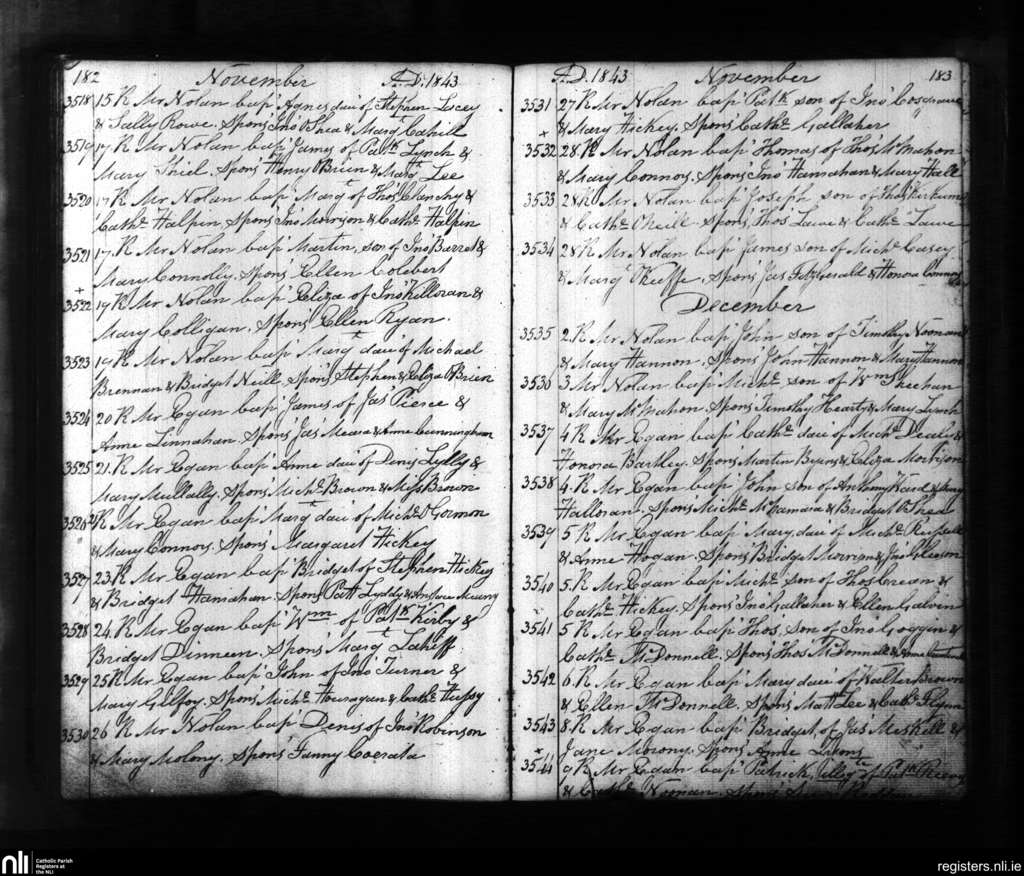 182 November A.D. 1843
3518 15 R Mr Nolan bap' Agnes dau' of Stephen Lacey
& Sally Rowe. Spons' Jno' O'Shea & Marg't Cahill
3519 17 R Mr Nolan bap' James of Pat'k Lynch &
Mary Shiel. Spons' Henry O'Brien & Marg't Lee
3520 17 R Mr Nolan bap' Marg't of Thos' Clanchy &
Cath'e Halpin. Spons' Jno' Morrison & Cath'e Halpin
3521 17. R Mr Nolan bap' Martin, son of Jno' Barret &
Mary Connolly. Spons' Ellen Colebert
+
3522 19 R Mr Nolan bap' Eliza of Jno' Killoran &
Mary Colligan. Spons' Ellen Ryan.
3523 19 R Mr Nolan bap' Marg't dau' of Michael
Brennan & Bridget Neill. Spons' Stephen & Eliza O'Brien
3524 20 R Mr Egan bap' James of Jas' Pierce &
Anne Linnahan. Spons' Jas' Meara & Anne Cunningham
3525 21. R Mr Egan bap' Anne dau' of Denis Lylly &
Mary Mullally. Spons' Mich'l Brown & Miss Brown
3526 R Mr Egan bap' Marg't dau' of Mich'l O'Gorman
& Mary Connors. Spons' Margaret Hickey
3527 23. R Mr Egan bap' Bridget of Stephen Hickey
& Bridget Hanrahan. Spons' Patt Lyddy &
3528 24. R Mr Egan bap' Wm of Pat'k Kirby &
Bridget Dinneen. Spons' Marg't Lahiff
3529 25 R Mr Egan bap' John of Jno' Turner &
Mary Gilfoy. Spons' Mich'l Houragan & Cath'e Hussy
3530 26 R Mr Nolan bap' Denis of Jno' Robinson
& Mary Molony. Spons' Fanny
A.D. 1843 November 183
3531 27 R Mr Nolan bap' Pat'k son of Jno' Cosgrave
& Mary Hickey. Spons' Cath'e Gallaher
+
3532 28. R Mr Nolan bap' Thomas of Thos' McMahon
& Mary Connors. Spons' Jno' Hanrahan & Mary Hall
3533 28 R Mr Nolan bap' Joseph son of Thos'
& Cath'e O'Neill. Spons' Thos' Lawe & Cath'e Lawe
3534 28 R Mr Nolan bap' James son of Mich'l Casey
& Marg't O'Keeffe, Spons' Jas' Fitzgerald & Honora Connors
December
3535 2. R Mr Nolan bap' John son of Timothy Noonan
& Mary Hannon. Spons' John Hannon & Mary Hannon
3536 3 Mr Nolan bap' Mich'l son of Wm Sheehan
& Mary McMahon. Spons' Timothy Hearty & Mary Lynch
3537 4 R Mr Egan bap' Cath'e dau' of Mich'l Dealy &
Honora Bartley. Spons' Martin Byrns & Eliza Morrison
3538 4. R Mr Egan bap' John son of Anthony Ward &
Halloran. Spons' Mich'l McNamara & Bridget O'Shea
3539 5 R Mr Egan bap' Mary dau' of Mich'l Russell
& Anne Hogan. Spons' Bridget Morrison & Jno' Gleeson
3540 5. R Mr Egan bap' Mich'l son of Thos' Crean &
Cath'e Hickey. Spons' Jno' Gallaher & Ellen Galvin
3541 5 R Mr Egan bap' Thos' son of Jno' Goggin &
Cath'e McDonnell. Spons' Thos' McDonnell &
3542 6. R Mr Egan bap' Mary dau' of Walter Brown
& Ellen McDonnell. Spons' Matt Lee & Cath'e Flynn
3543 8. R Mr Egan bap' Bridget of Jas' Meskill &
Jane Morony. Spons' Anne Lyons
+
3544 9 R Mr Egan bap' Patrick, illeg'te of Pat'k
& Cath'e Noonan. Spons'
nli Catholic Parish
Registers at
the NLI
registers.nli.ie